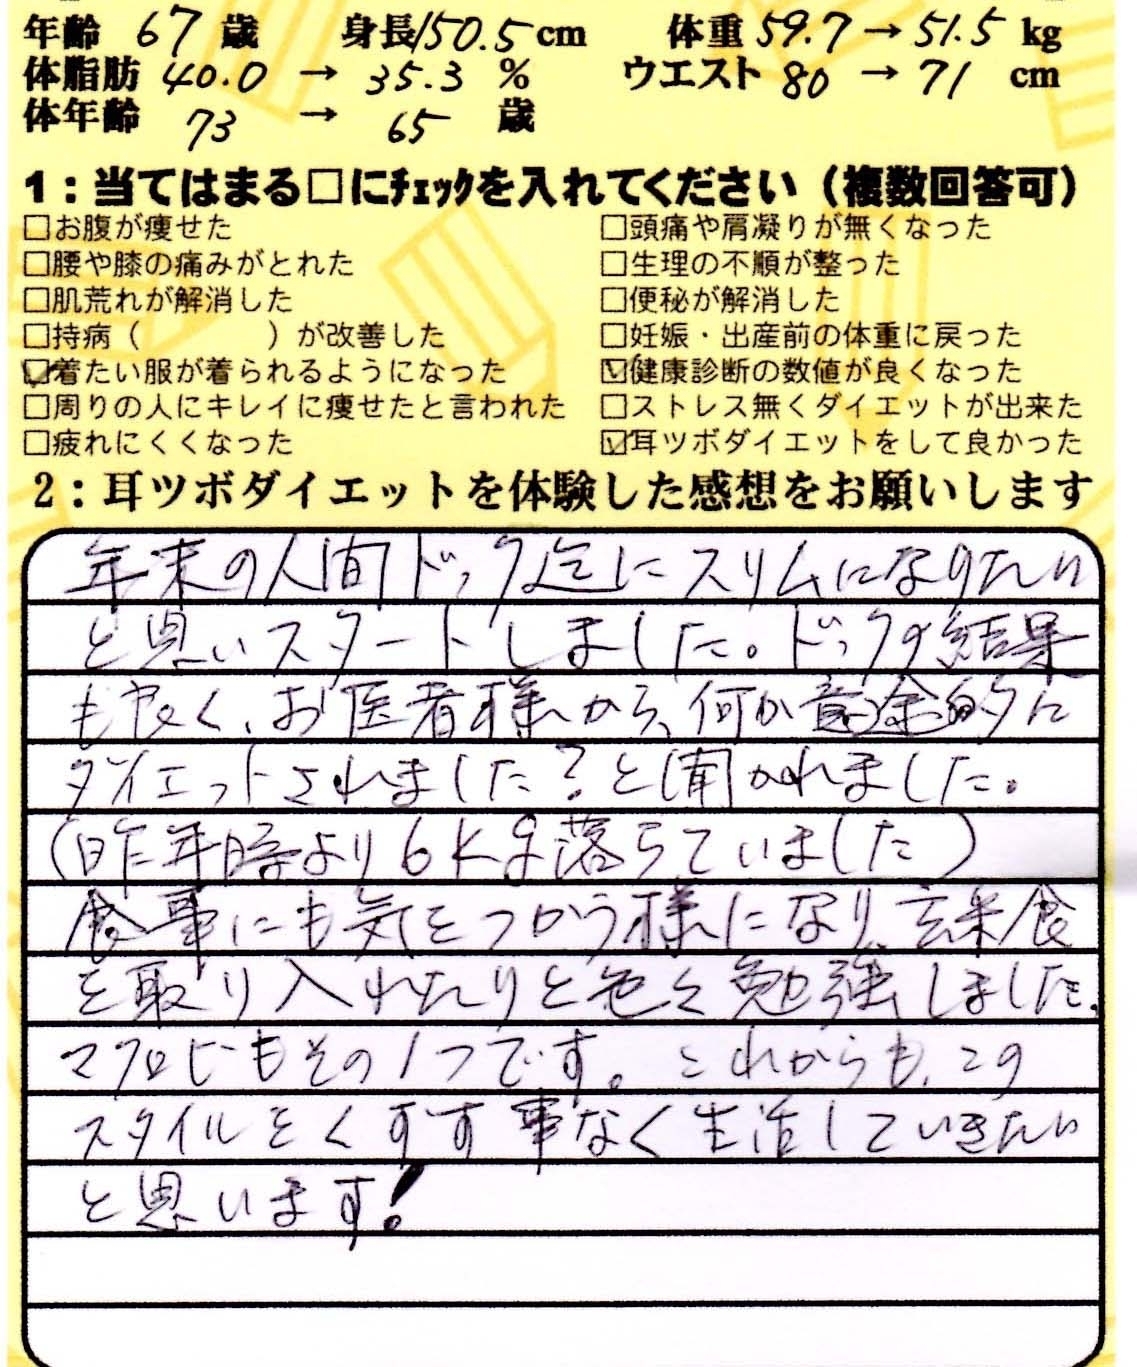 年齢 67 歳 身長 150.5 cm 体重 59.7 → 51.5 kg
体脂肪 40.0 → 35.3 % ウエスト 80 → 71 cm
体年齢 73 → 65 歳
1：当てはまる□にチェックを入れてください（複数回答可）
□お腹が痩せた □頭痛や肩凝りが無くなった
□腰や膝の痛みがとれた □生理の不順が整った
□肌荒れが解消した □便秘が解消した
□持病（　　　　）が改善した □妊娠・出産前の体重に戻った
☑着たい服が着られるようになった ☑健康診断の数値が良くなった
□周りの人にキレイに痩せたと言われた □ストレス無くダイエットが出来た
□疲れにくくなった ☑耳ツボダイエットをして良かった
2：耳ツボダイエットを体験した感想をお願いします
年末の人間ドック迄にスリムになりたい
と思いスタートしました。ドックの結果
も良く、お医者様から、何か意図的に
ダイエットされました？と聞かれました。
（昨年時より6kg落ちていました）
食事にも気をつかう様になり、玄米食
を取り入れたりと色々勉強しました。
マクロビもその1つです。これからも、この
スタイルをくずす事なく生活していきたい
と思います！